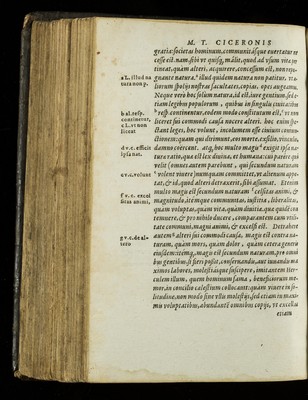 M. T. CICERONIS
gratiæ societas hominum, communitásque euertatur ne
cesse est. nam sibi vt quisq, mâlit, quod ad vsum vitæ per
tineat, quàm alteri, acquirere, concessum est, non repu-
gnante natura. illud quidem natura non patitur, vt a-
liorum spoliis nostras facultates, copias, opes augeamus.
Neque verò hoc solùm natura, id est, iure gentium, sed e-
tiam legibus populorum, quibus in singulis ciuitatibus
resp. continentur, eodem modo constitutum est, vt non
liceat sui commodi causa nocere alteri. hoc enim spe-
ctant leges, hoc volunt, incolumem esse ciuium coniun-
ctionem: quam qui dirimunt, eos morte, exsilio, vinculis,
damno coërcent. atq, hoc multo magis exigit ipsa na-
turæ ratio, quæ est lex diuina, et humana: cui parêre qui
velit (omnes autem parebunt, qui secundum naturam
volent viuere) nunquam committet, vt alienum appe-
tat, & id, quod alteri detraxerit, sibi assumat. Etenim
multo magis est secundum naturam celsitas animi, &
magnitudo, itémque communitas, iustitia, liberalitas,
quàm voluptas, quàm vita, quàm diuitiæ. quæ quidem con
temnere, & pro nihilo ducere, comparantem cum vtili-
tate communi, magni animi, & excelsi est. Detrahere
autem alteri sui commodi causa, magis est contra na-
turam, quàm mors, quàm dolor, quàm cetera generis
eiusdem: itémq, magis est secundum naturam, pro omni
bus gentibus, si fieri possit, conseruandis, aut iuuandis ma
ximos labores, molestiásque suscipere, imitantem Her-
culem illum, quem hominum fama, beneficiorum me-
mor, in concilio cælestium collocauit: quàm viuere in so-
litudine, non modo sine vllis molestijs, sed etiam in maxi-
mis voluptatibus, abundantem omnibus copijs, vt excellas
etiam
a L. illud na
tura non p.
b al. resp.
continetur,
c L. vt non
liceat
d v. c. efficit
ipsa nat.
e v. a. volunt
f v. c. excel
sitas animi,
g v. c. de al-
tero